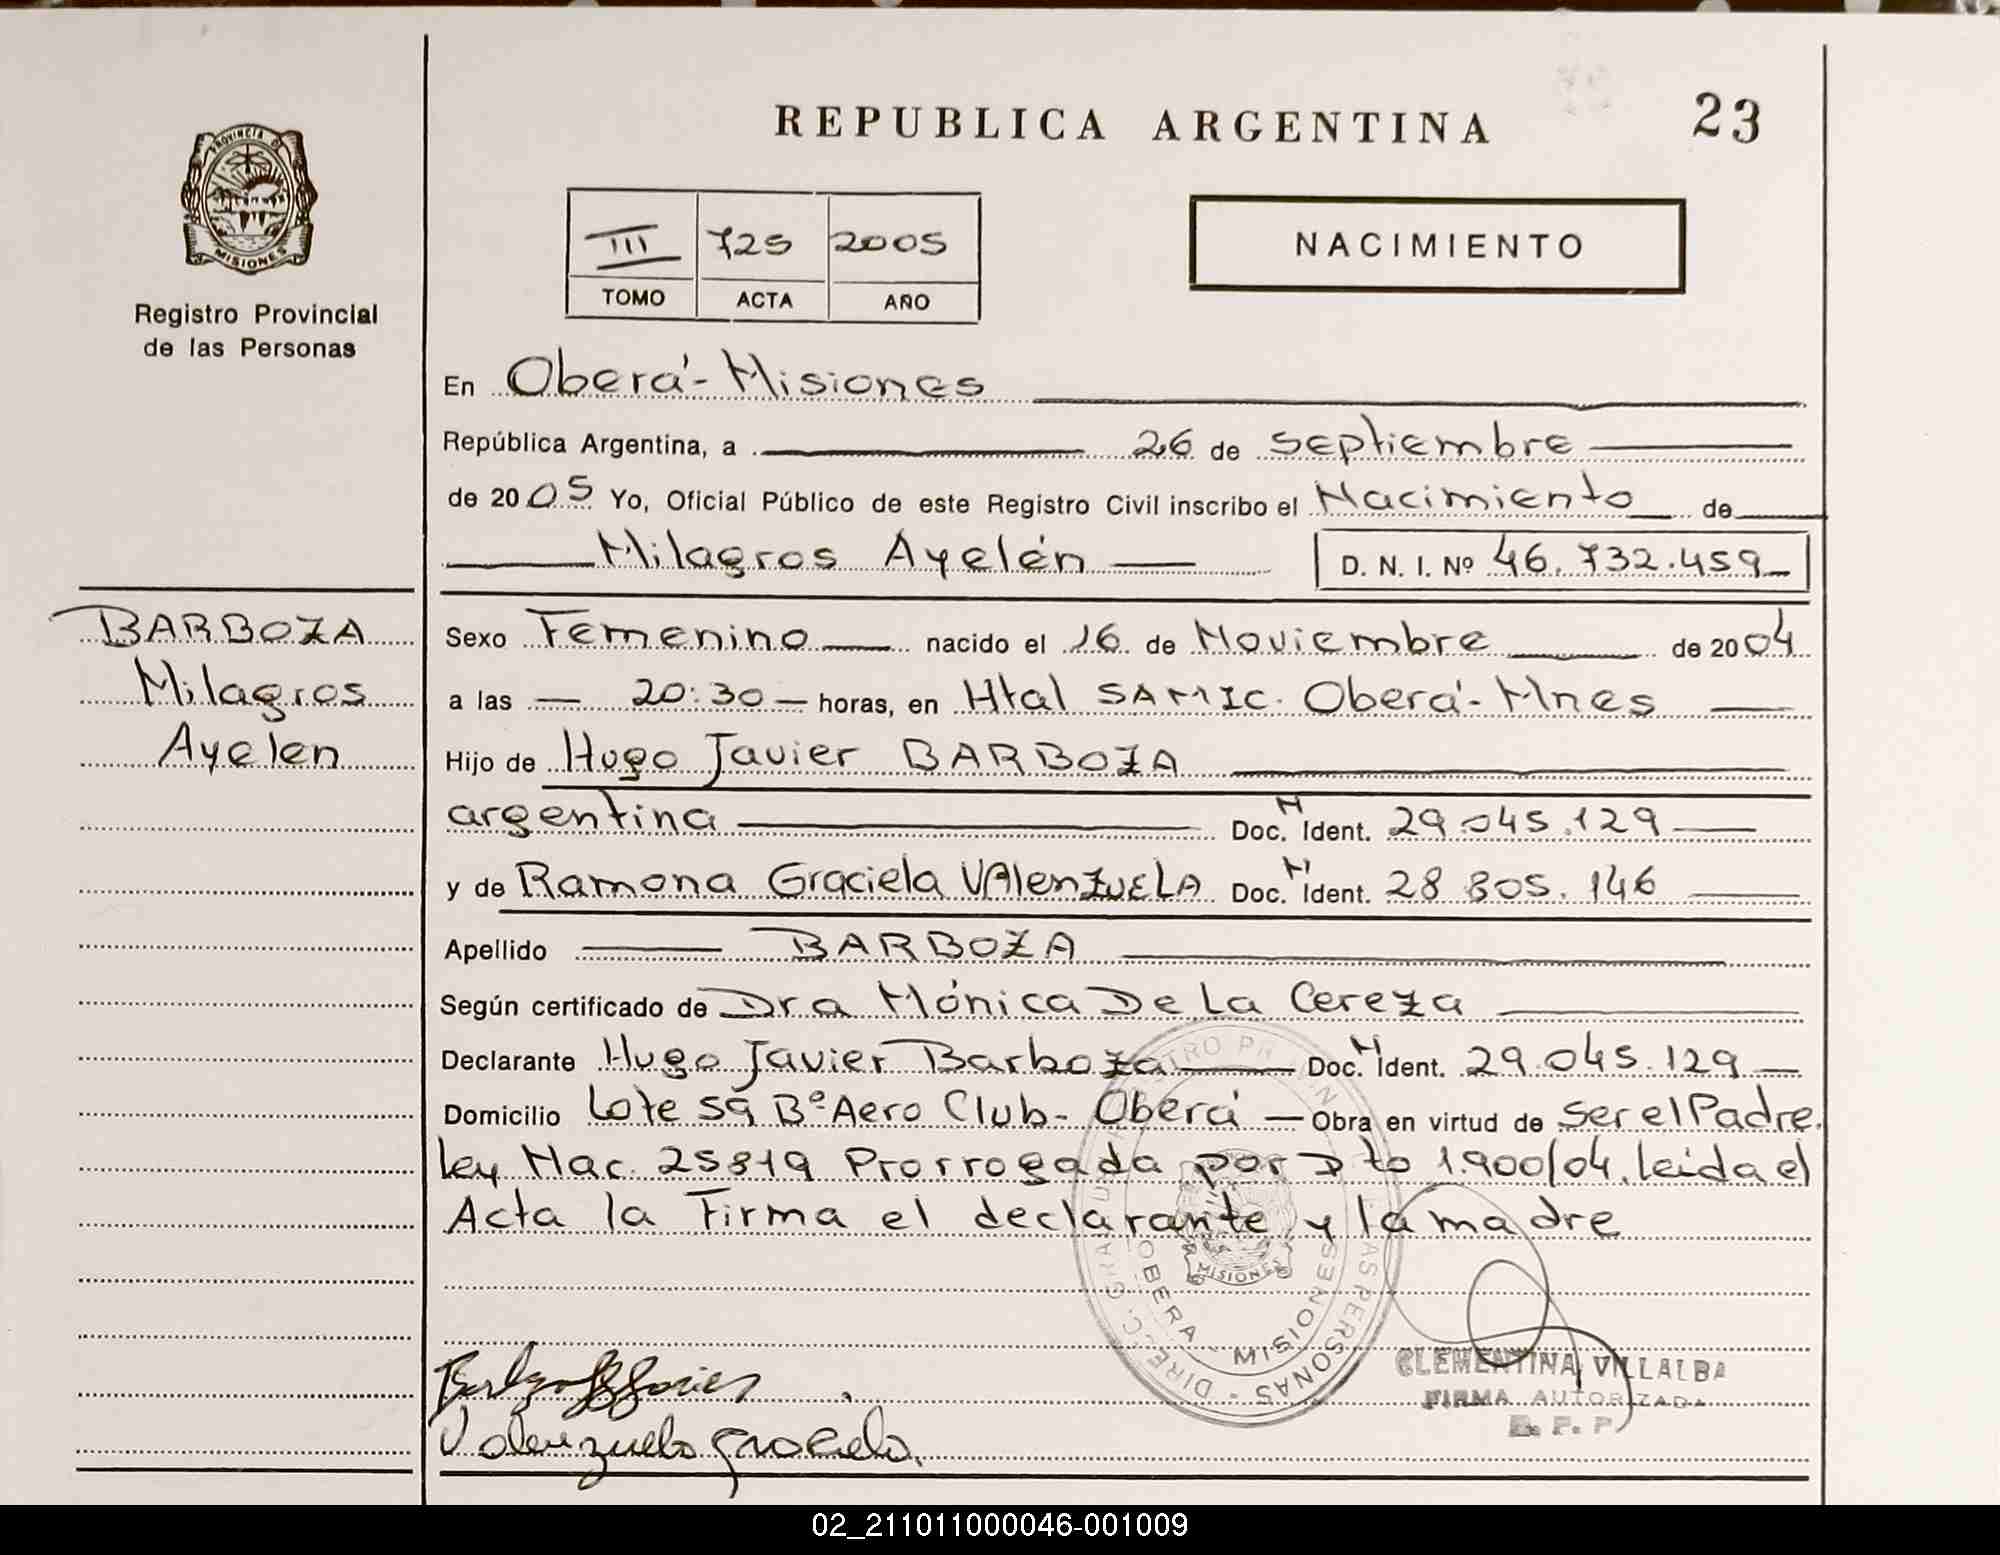 REPUBLICA ARGENTINA
23
PROVINCIA DE
MISIONES
Registro Provincial
de las Personas
III 725 2005
TOMO ACTA AÑO
NACIMIENTO
En Oberá - Misiones
República Argentina, a 26 de Septiembre
de 2005 Yo, Oficial Público de este Registro Civil inscribo el Nacimiento de
Milagros Ayelén D. N. I. Nº 46.732.459
BARBOZA
Milagros
Ayelen
Sexo Femenino nacido el 16 de Noviembre de 2004
a las 20:30 horas, en Htal SAMIC. Oberá - Mnes
Hijo de Hugo Javier BARBOZA
argentina Doc. N Ident. 29.045.129
y de Ramona Graciela VAlenZuELA Doc. N Ident. 28 805.146
Apellido BARBOZA
Según certificado de Dra Mónica De La Cereza
Declarante Hugo Javier Barboza Doc. N Ident. 29.045.129
Domicilio Lote 59 Bº Aero Club - Oberá - Obra en virtud de Ser el Padre.
Ley Nac. 25819 Prorrogada por Dto 1.900/04. leida el
Acta la Firma el declarante y la madre
OBERA - MISIONES
MISIONES
Valenzuela Graciela.
CLEMENTINA VILLALBA
FIRMA AUTORIZADA
R. P. P.
02_211011000046-001009